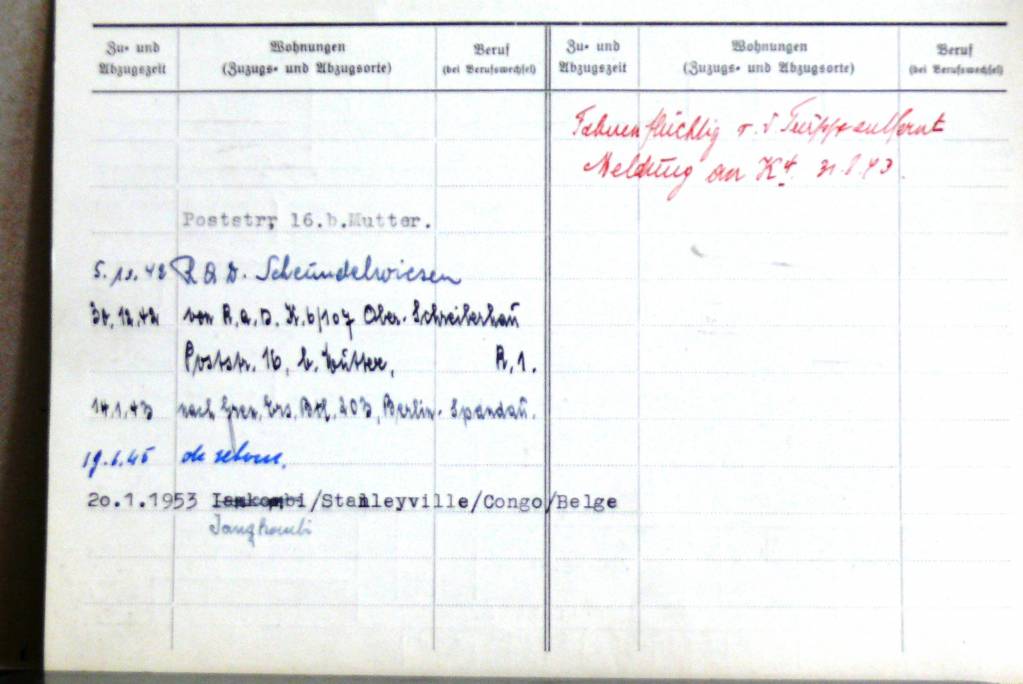 Zu- und Abzugszeit
Wohnungen
(Zuzugs- und Abzugsorte)
Beruf
(bei Berufswechsel)
Zu- und Abzugszeit
Wohnungen
(Zuzugs- und Abzugsorte)
Beruf
(bei Berufswechsel)
Poststr, 16.b.Mutter.
R.A.D. Scheundelwiesen
30.12.42 von R.A.D. K.6/107 Ober-Schreiberhau
Poststr. 16, b. Mutter, R,1.
14.1.43 nach Gren, Ers, Btl, 203, Berlin-Spandau.
19.6.45 de retour.
20.1.1953 /Stanleyville/Congo/Belge
Jangkombi
Fahnenflüchtig v. d. Truppe entfernt
Meldung an K4.